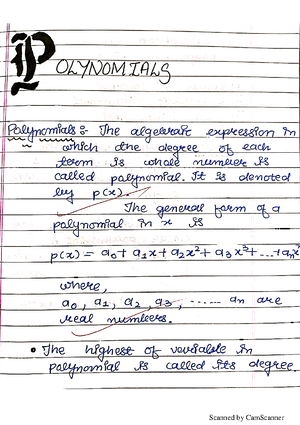 POLYNOMIALS
Polynomials :- The algebraic expression in
which the degree of each
term is whole number is
called polynomial. It is denoted
by p(x).
The general form of a
polynomial in x is
p(x) = a₀ + a₁x + a₂x² + a₃x³ + ... + aₙxⁿ
where,
a₀, a₁, a₂, a₃, ...... an are
real numbers.
• The highest of variable in
polynomial is called its degree.
Scanned by CamScanner